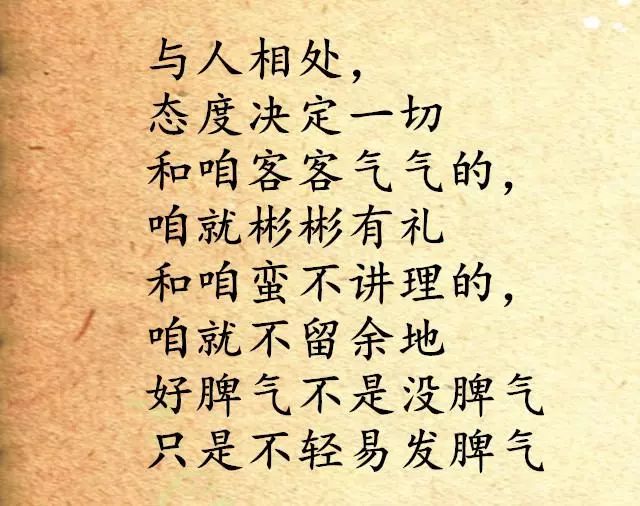 与人相处，
态度决定一切
和咱客客气气的，
咱就彬彬有礼
和咱蛮不讲理的，
咱就不留余地
好脾气不是没脾气
只是不轻易发脾气